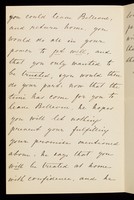 you could leave Bellevue,
and return home, you
would do all in your
power to get well, and
that you only wanted to
be trusted, you would then
do your part. now that the
time has come for you to
leave Bellevue, he hopes
you will let nothing
prevent your fulfilling
your promise mentioned
above, he says that you
will be treated at home
with confidence, and he